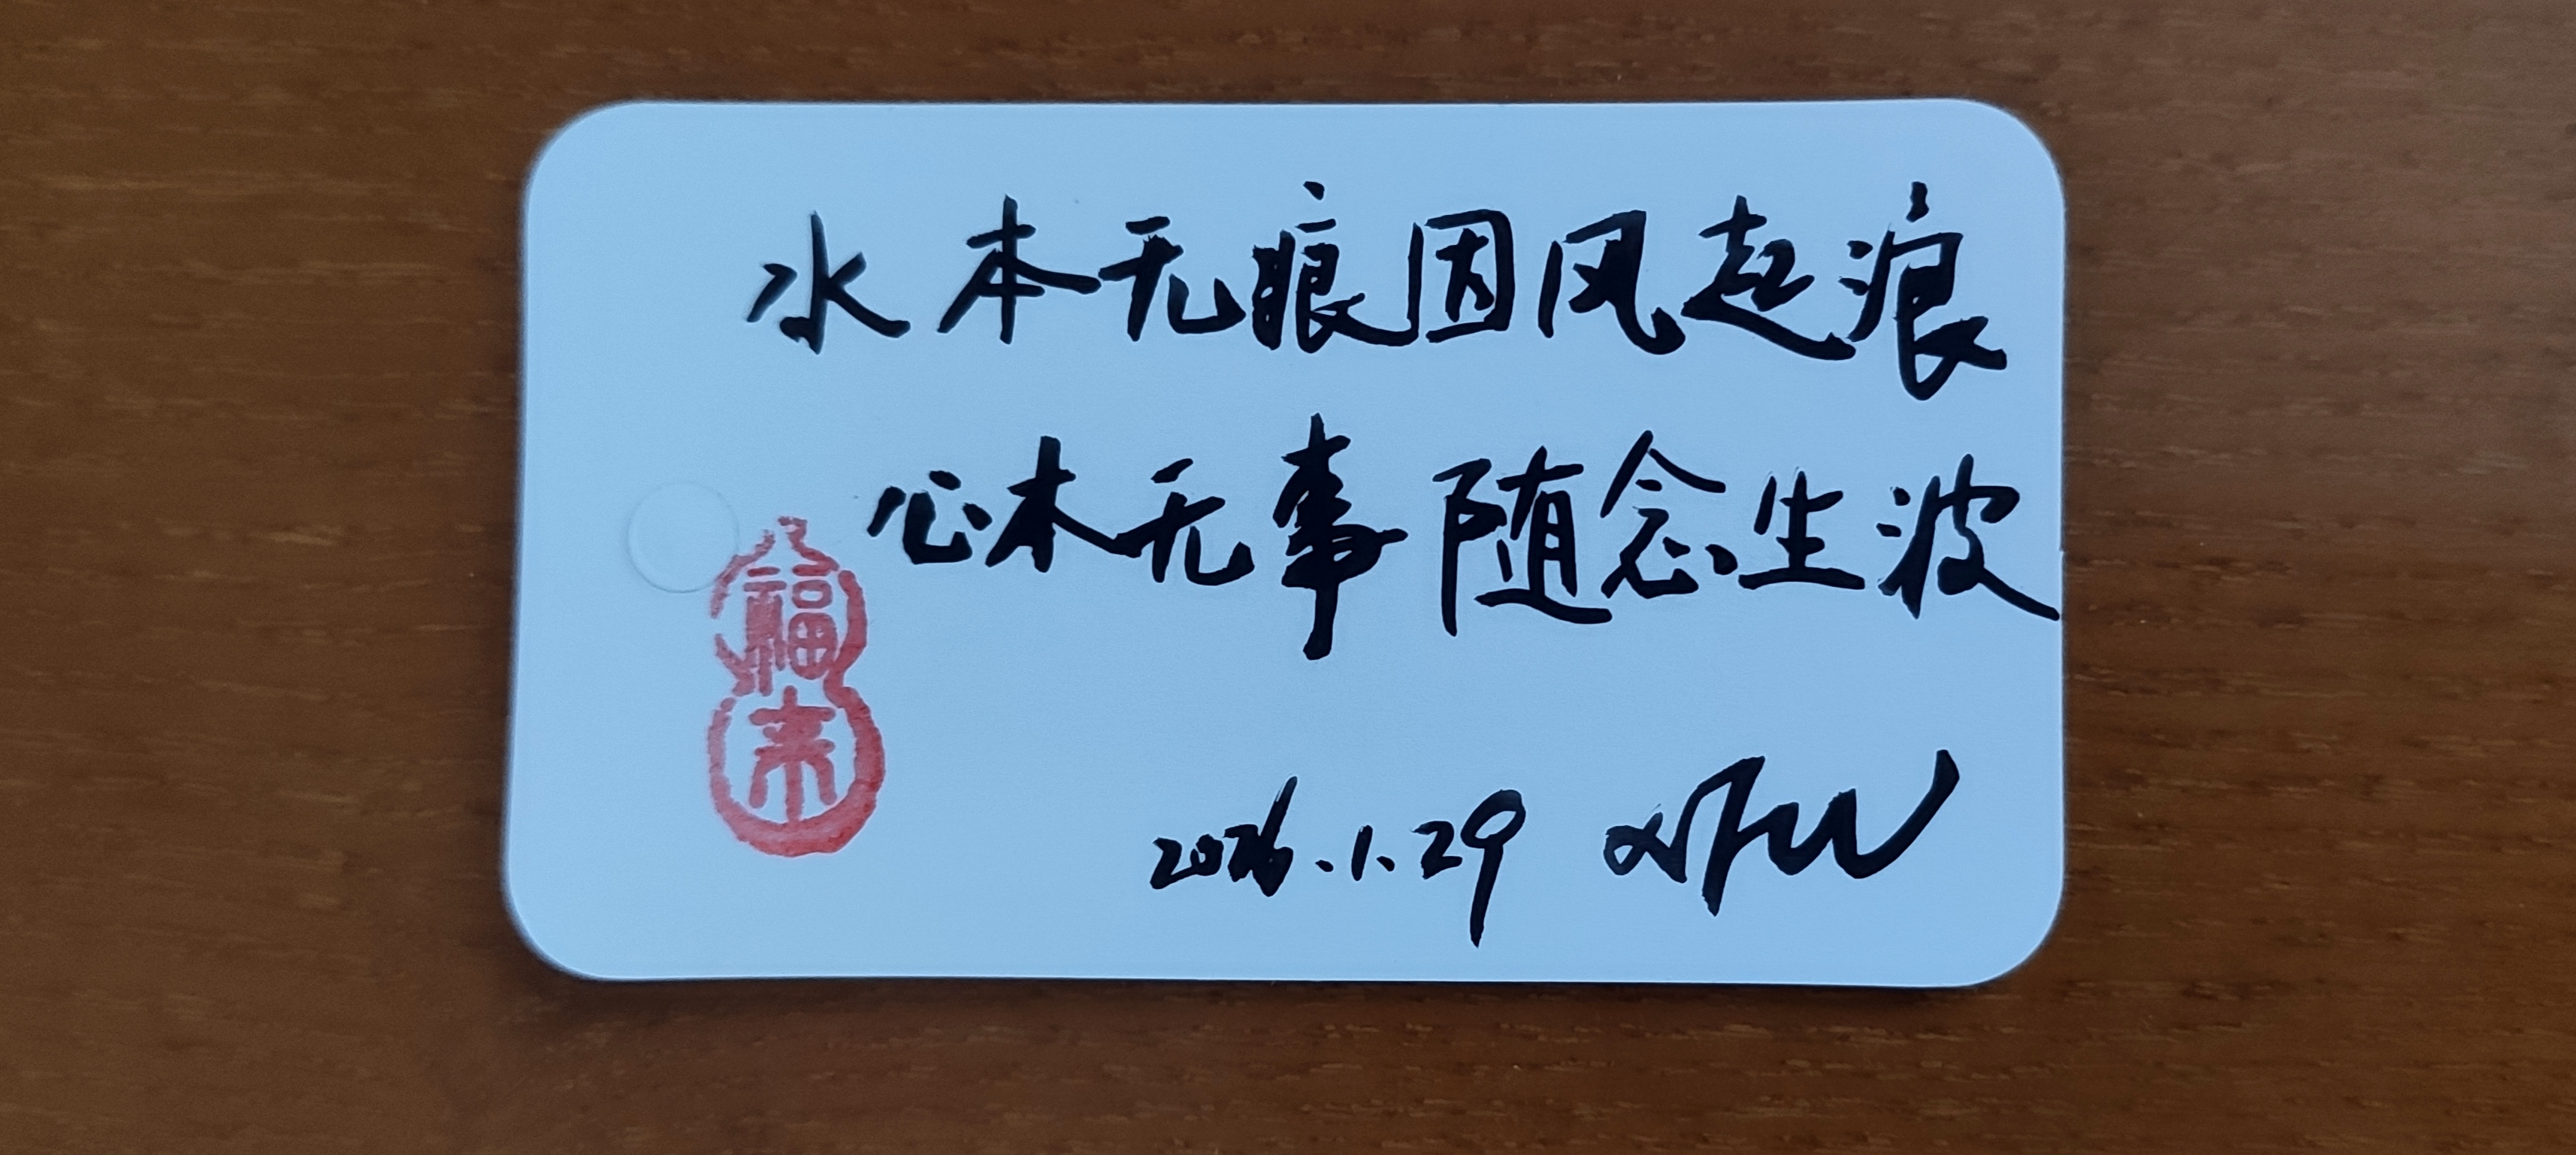 水本无痕因风起浪
心本无事随念生波
福来
2026.1.29